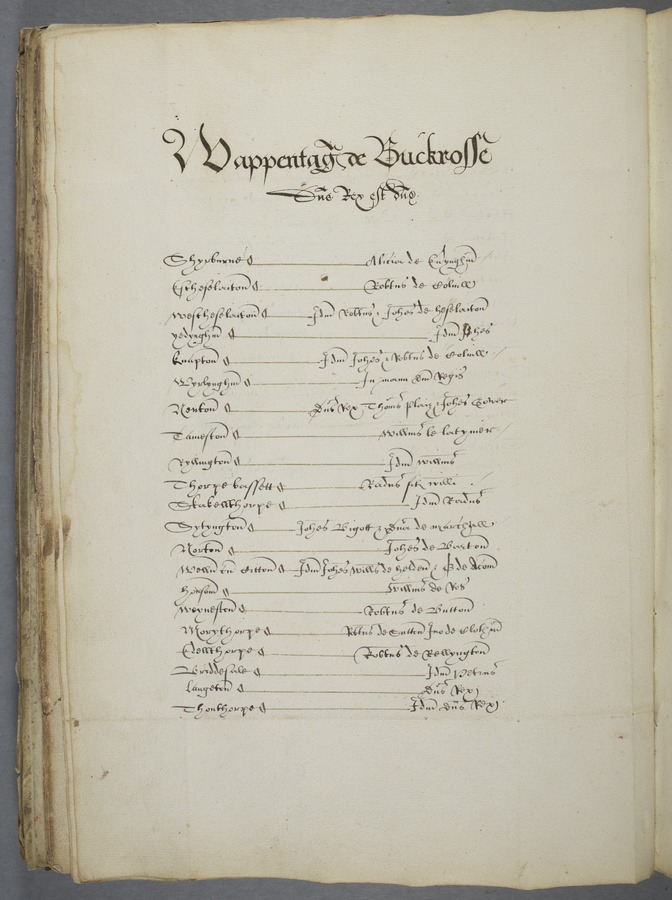 Wappentag̃ de Buckrosse
Dñs Rex est dñs
Shyrburne Alicia de
Estheslarton Robtus de Colmell
Westheslarton Idm Robtus & Johes de heslarton
yedingham Idm Johes
knapton Idm Johes & Robtus de Colmell
Wyrlyngham In manu Dni Regis
Norton Dñs Rex Thoms playz & Johes Gower
Tameston Willms le latymer
Ryllington Idm Willms
Thorpe bassett Radus fitz willi
Skakellthorpe Idm Radus
Sytryngton Johes Bigott & de marchall
Norton Johes de Barton
cũ Sutton Idm Johes Wills de helden & de Acom
howsom Willms de Ros
Weyneston Robtus de Button
Morythorpe Robtus de Sutton
Edelthorpe Robtus de Rellyngton
Briddesale Idm Petrus
Langeton Dñs Rex
Thouthorpe Idm Dñs Rex